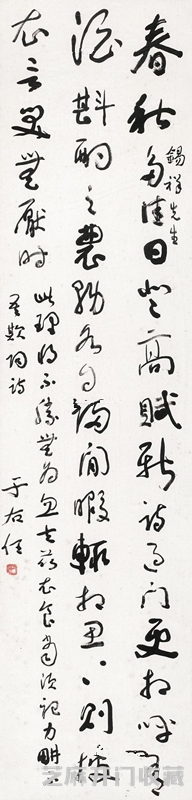 錫祥先生
春秋多佳日登高賦新詩過門更相呼有
酒斟酌之農務各自歸閒暇輒相思〻則披
衣言笑無厭時
此理將不勝無為忽去茲衣食當須記力畊不
吾欺陶詩
于右任
芝麻开门收藏